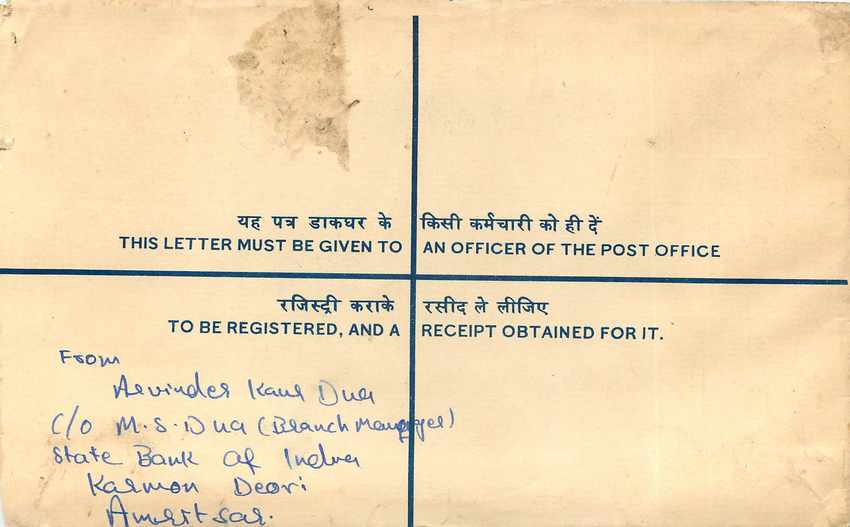 यह पत्र डाकघर के किसी कर्मचारी को ही दें
THIS LETTER MUST BE GIVEN TO AN OFFICER OF THE POST OFFICE
रजिस्ट्री कराके रसीद ले लीजिए
TO BE REGISTERED, AND A RECEIPT OBTAINED FOR IT.
From
Arvinder Kaur Dua
C/O M.S. Dua (Branch Manager)
State Bank of India
Karmon Deori
Amritsar.